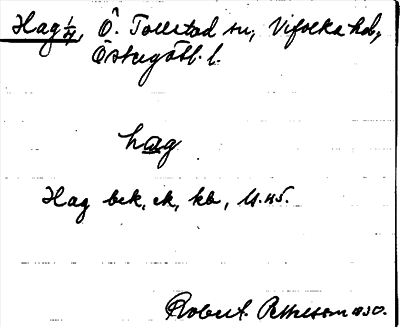 Hag 1/4, Ö. Tollstad sn, Vifolka hd,
Östergötl. l.
hag
Hag bek, ek, kb,
Robert Pettersson 1930.